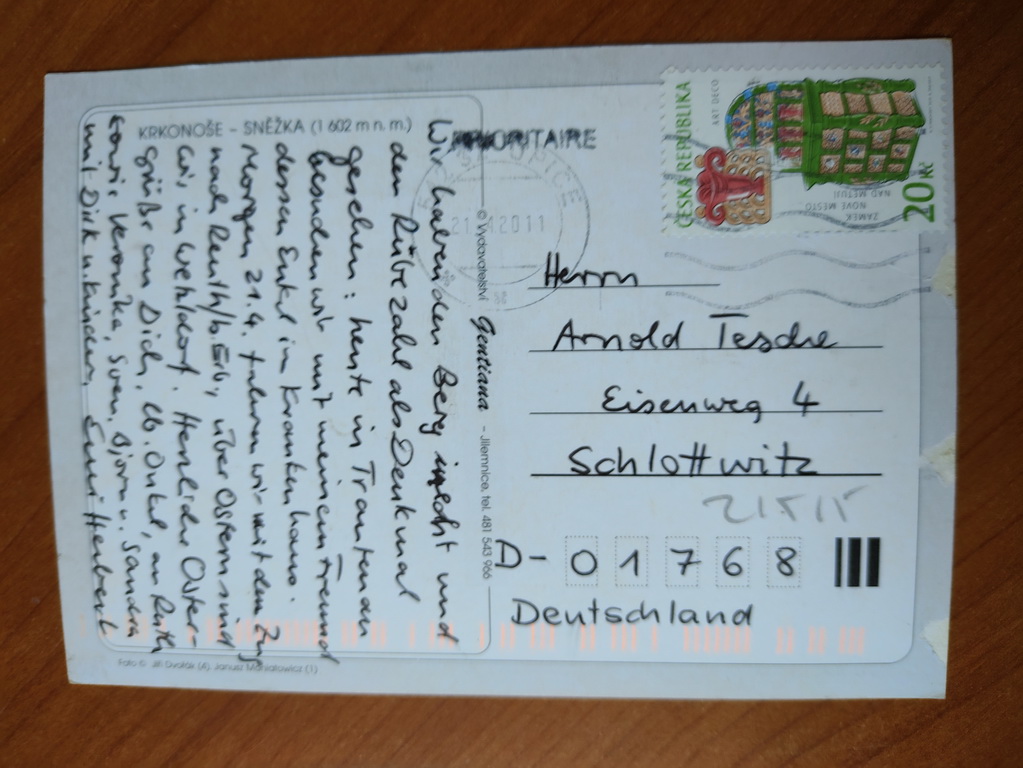 KRKONOŠE – SNĚŽKA (1 602 m n. m.)
Wir haben den Berg und
den Rübezahl als Denkmal
gesehen: heute in Trautenau
besuchen wir mit meinem Freund
dessen Enkel im Krankenhaus.
Morgen 21.4. fahren wir mit dem Zug
nach über Ostern sind
wir in Wehlsdorf. Herzliche Oster-
grüße an Dich, lb. Onkel, an Ruth
sowie Veronika, Sven, Björn u. Sandra
mit Dirk u. Kindern, Euer Herbert
Foto © Jiří Dvořák (4), Janusz Moniatowicz (1)
© Vydavatelství Gentiana – Jilemnice, tel. 481 543 966
PRIORITAIRE
21.4.2011
ČESKÁ REPUBLIKA
ART DECO
ZÁMEK
NOVÉ MĚSTO
NAD METUJÍ
20 Kč
Herrn
Arnold Tesche
Eisenweg 4
Schlottwitz
21515
D - 01768
Deutschland